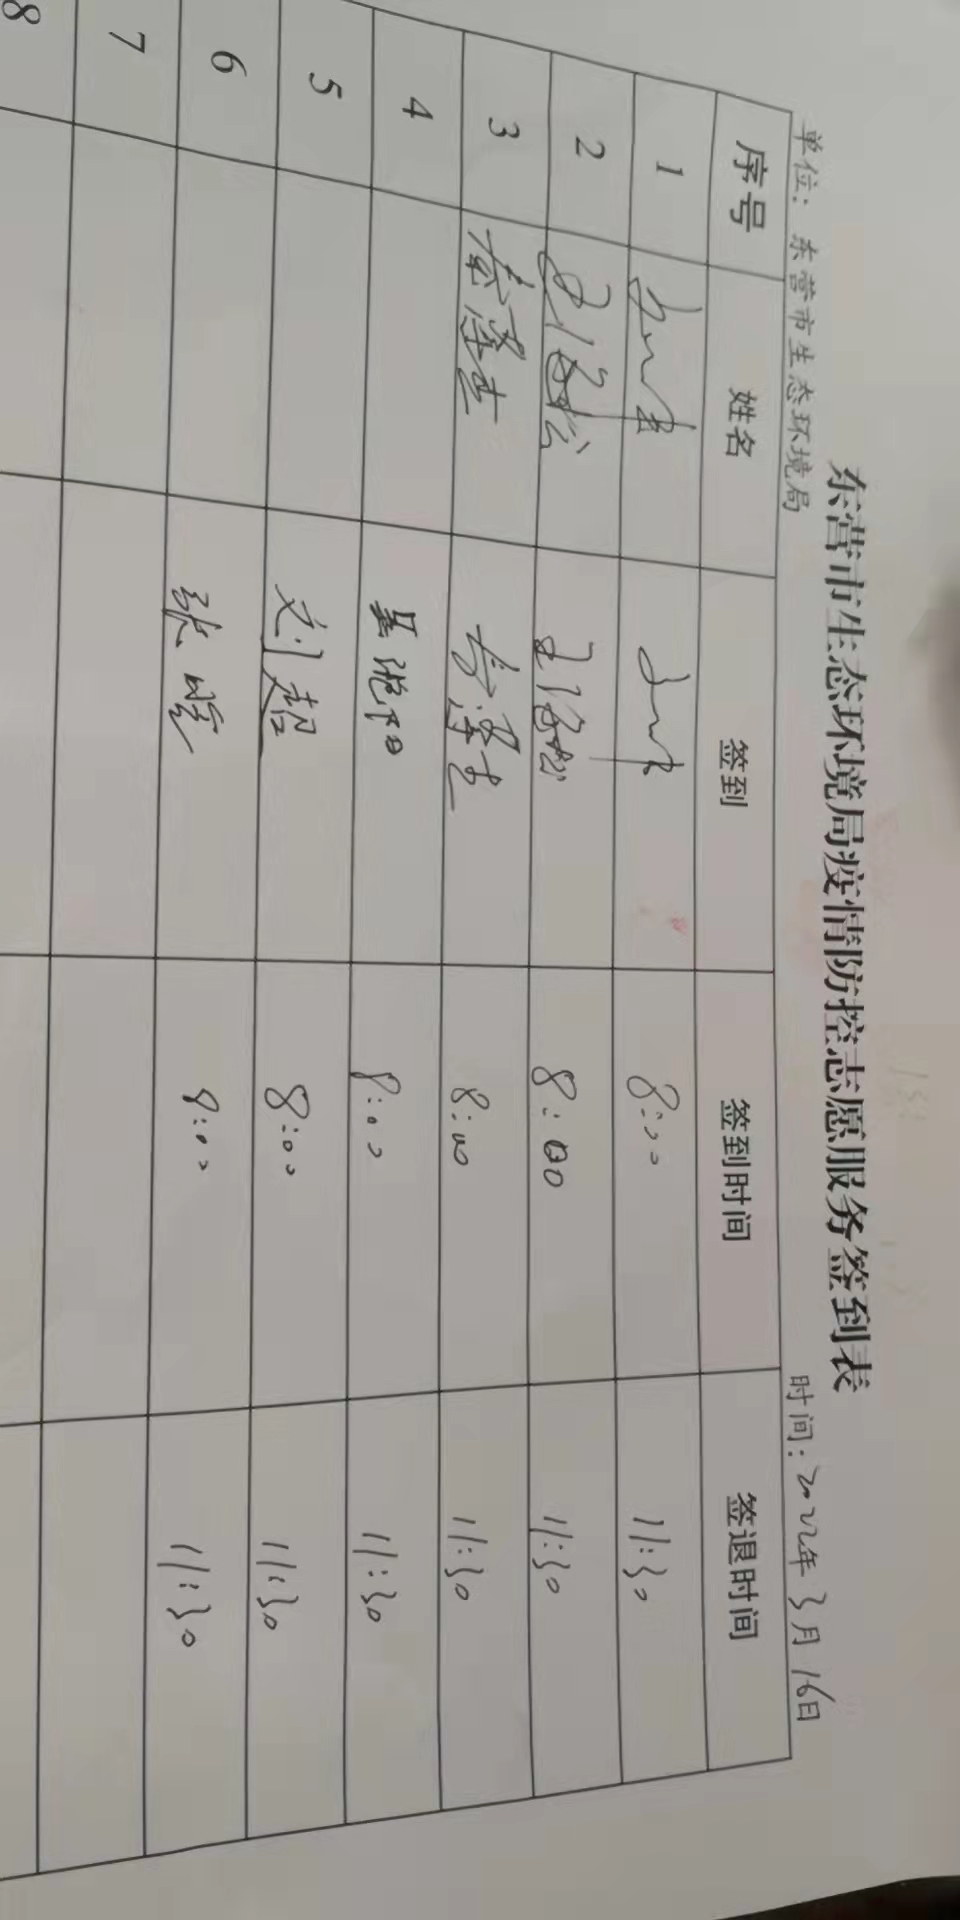 东营市生态环境局疫情防控志愿服务签到表
单位：东营市生态环境局 时间：2022年3月16日
序号 姓名 签到 签到时间 签退时间
1 8:00 11:30
2 8:00 11:30
3 8:00 11:30
4 8:00 11:30
5 刘超 8:00 11:30
6 张 8:00 11:30
7
8